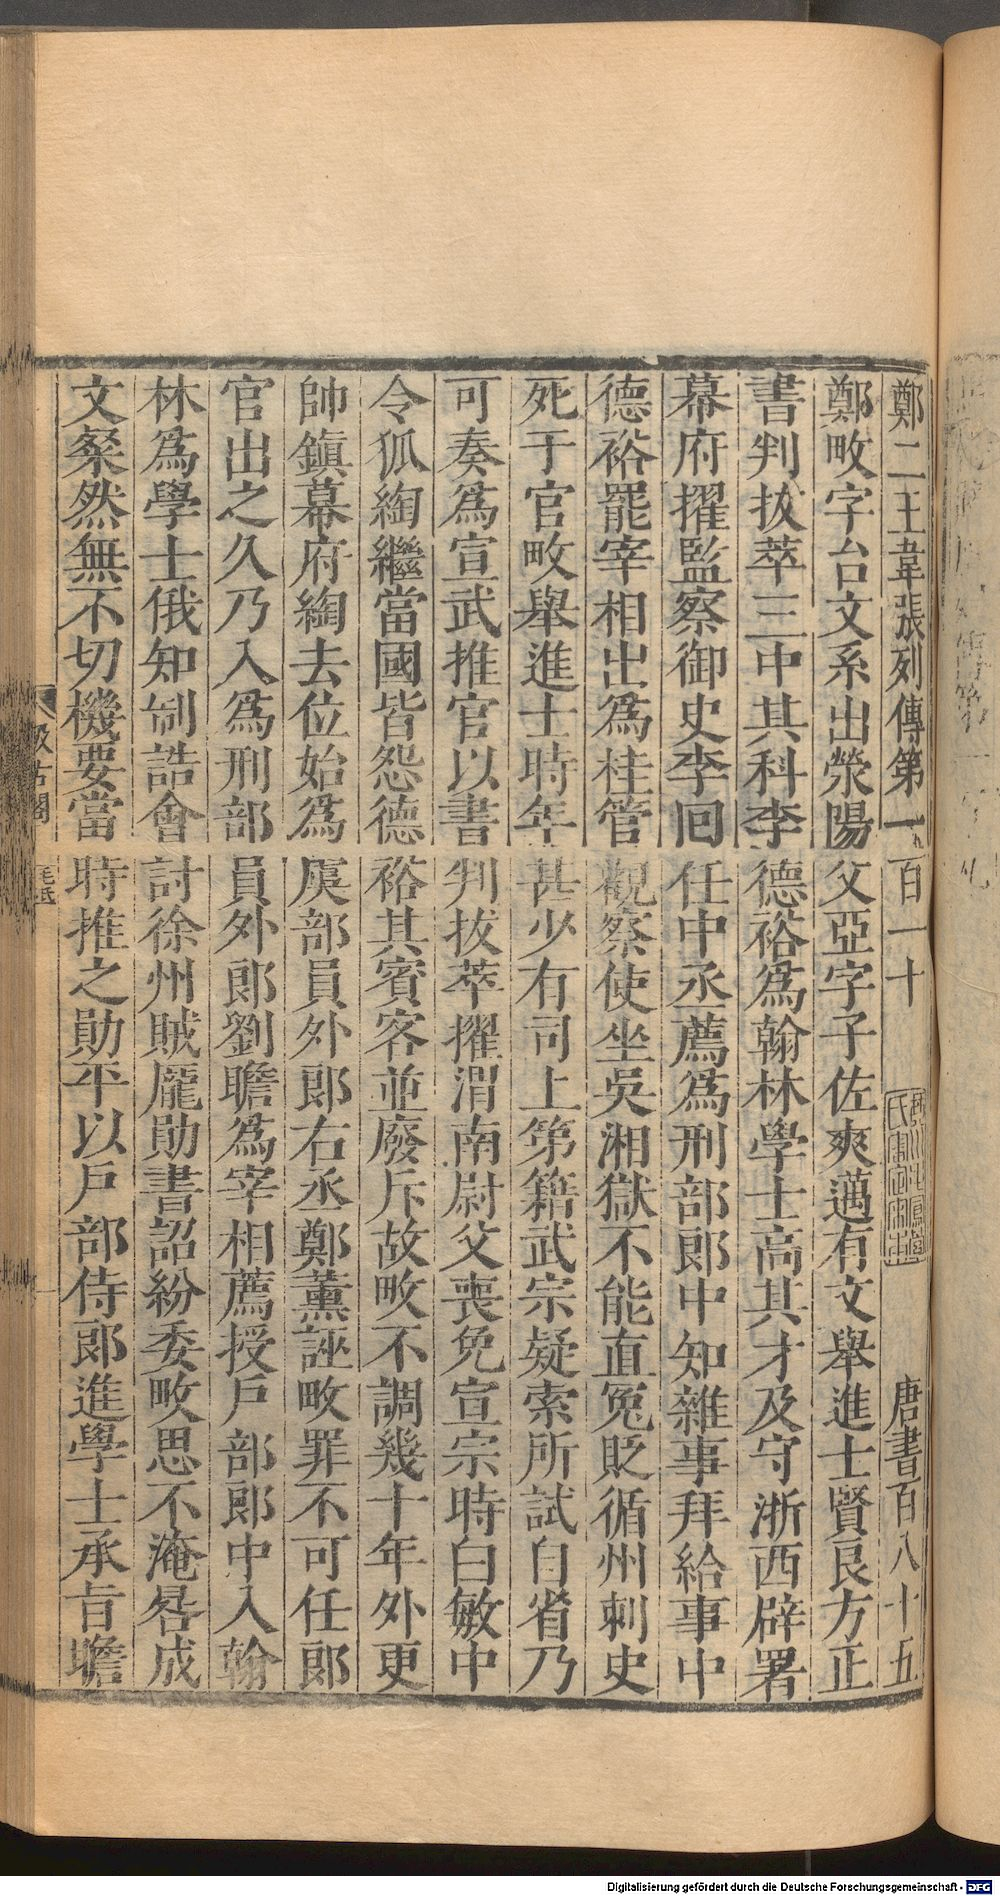 鄭二王韋張列傳第一百一十 唐書百八十五
鄭畋字台文系出滎陽父亞字子佐爽邁有文舉進士賢良方正
書判拔萃三中其科李德裕爲翰林學士高其才及守浙西辟署
幕府擢監察御史李回任中丞薦爲刑部郎中知雜事拜給事中
德裕罷宰相出爲桂管觀察使坐吳湘獄不能直冤貶循州刺史
死于官畋舉進士時年甚少有司上第籍武宗疑索所試自省乃
可奏爲宣武推官以書判拔萃擢渭南尉父喪免宣宗時白敏中
令狐綯繼當國皆怨德裕其賓客並廢斥故畋不調幾十年外更
帥鎮幕府綯去位始爲虞部員外郎右丞鄭薰誣畋罪不可任郎
官出之久乃入爲刑部員外郎劉瞻爲宰相薦授戶部郎中入翰
林爲學士俄知制誥會討徐州賊龐勛書詔紛委畋思不淹晷成
文粲然無不切機要當時推之勛平以戶部侍郎進學士承旨瞻
汲古閣
毛氏
Digitalisierung gefördert durch die Deutsche Forschungsgemeinschaft - DFG